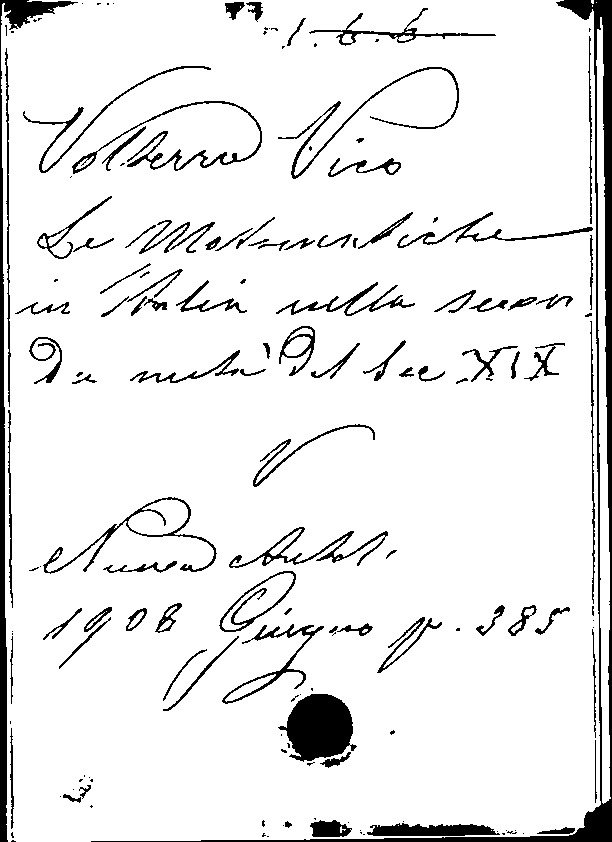 1.6.6.
Volterra Vico
Le Matematiche
in Italia nella secon
da metà del Sec XIX
V
Nuova Antol.
1908 Giugno p. 385